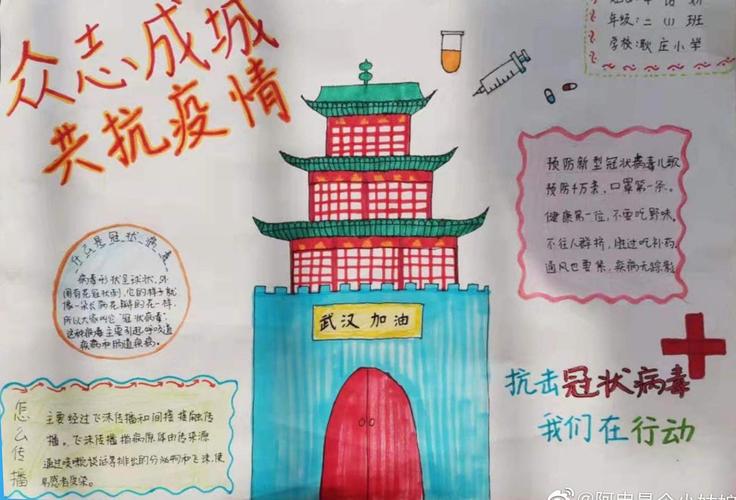 众志成城
共抗疫情
年级:二(1)班
学校:耿庄小学
什么是冠状病毒
病毒形状呈球状,外
围有花冠状刺,它的样子就
像一朵长满花瓣的花一样,
所以大家叫它“冠状病毒”
这种病毒主要引起呼吸道
疾病和肠道疾病。
怎么传播
主要经过飞沫传播和间接接触传
播。飞沫传播指病原体由传染源
通过咳嗽谈话等排出的分泌物和飞沫,使
易感者感染。
武汉加油
预防新型冠状病毒儿歌
预防千万条,口罩第一条。
健康第一位,不要吃野味。
不往人群挤,胜过吃补药
通风也要紧,疾病无踪影
抗击冠状病毒
我们在行动